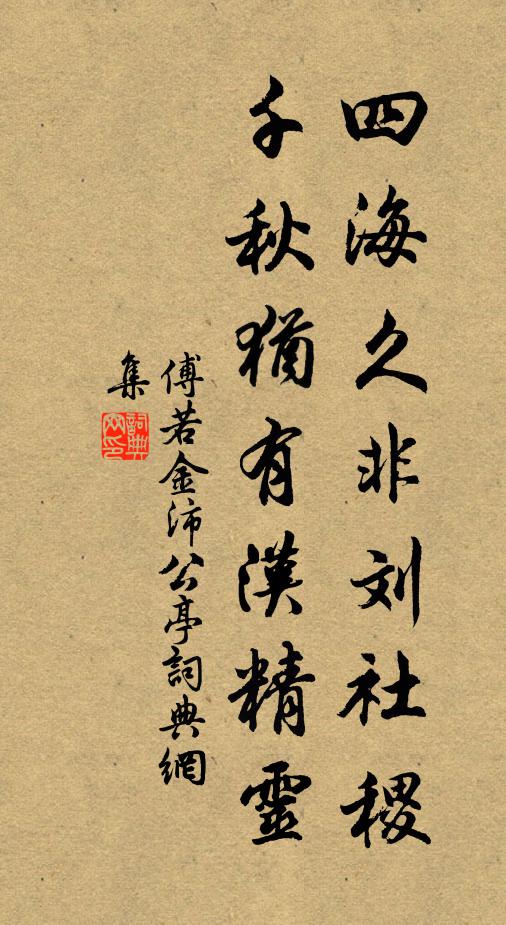 四海久非刘社稷
千秋猶有漢精靈
傅若金沛公亭詞典網
集
詞典网印